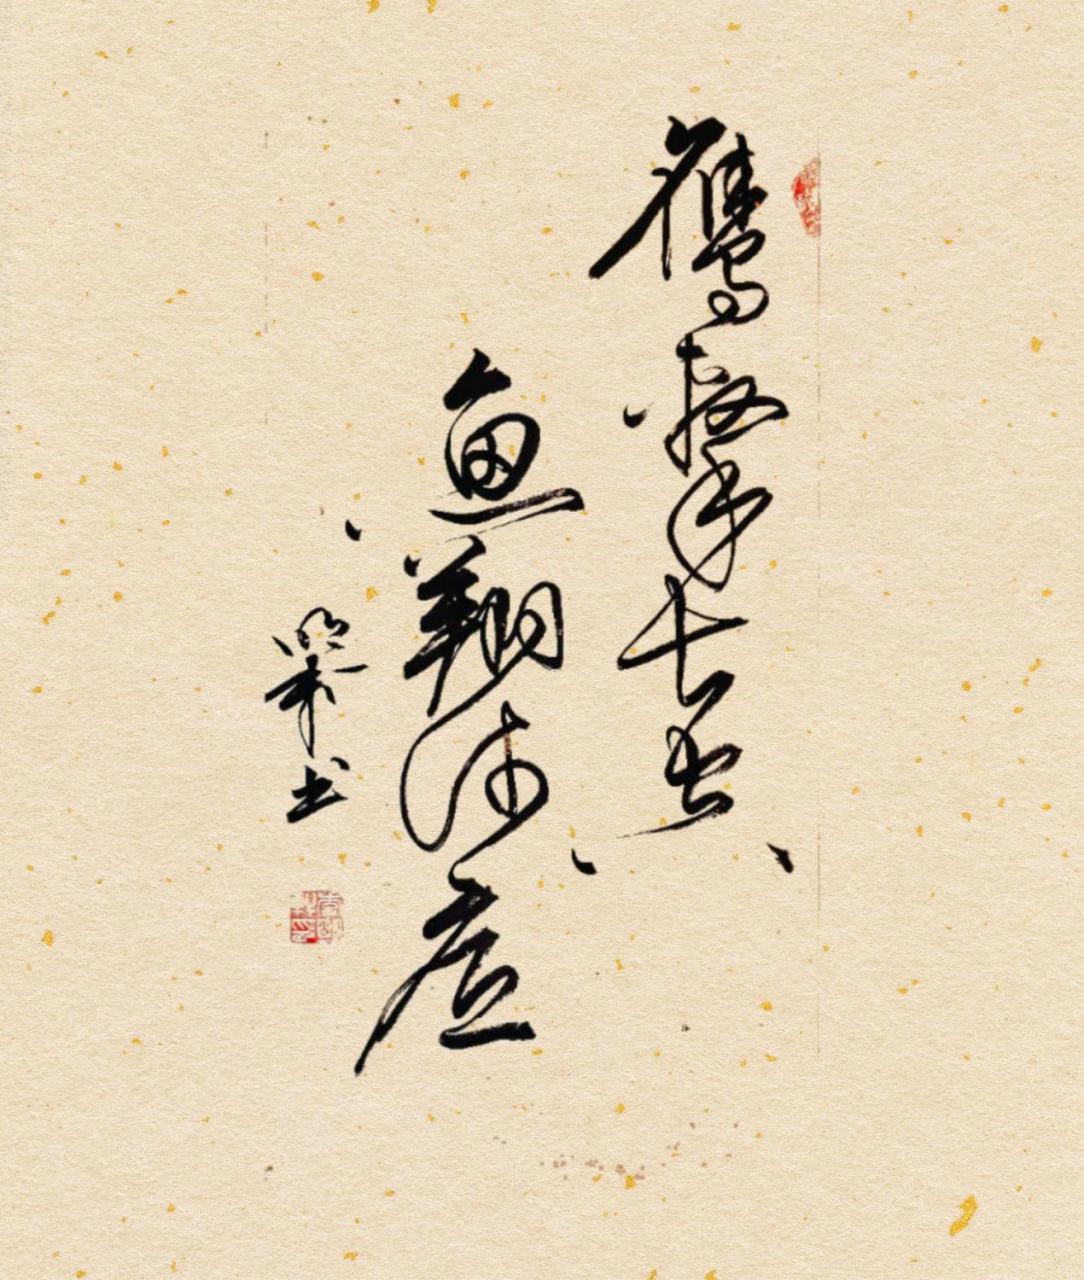 鹰擊长空
鱼翔浅底
书